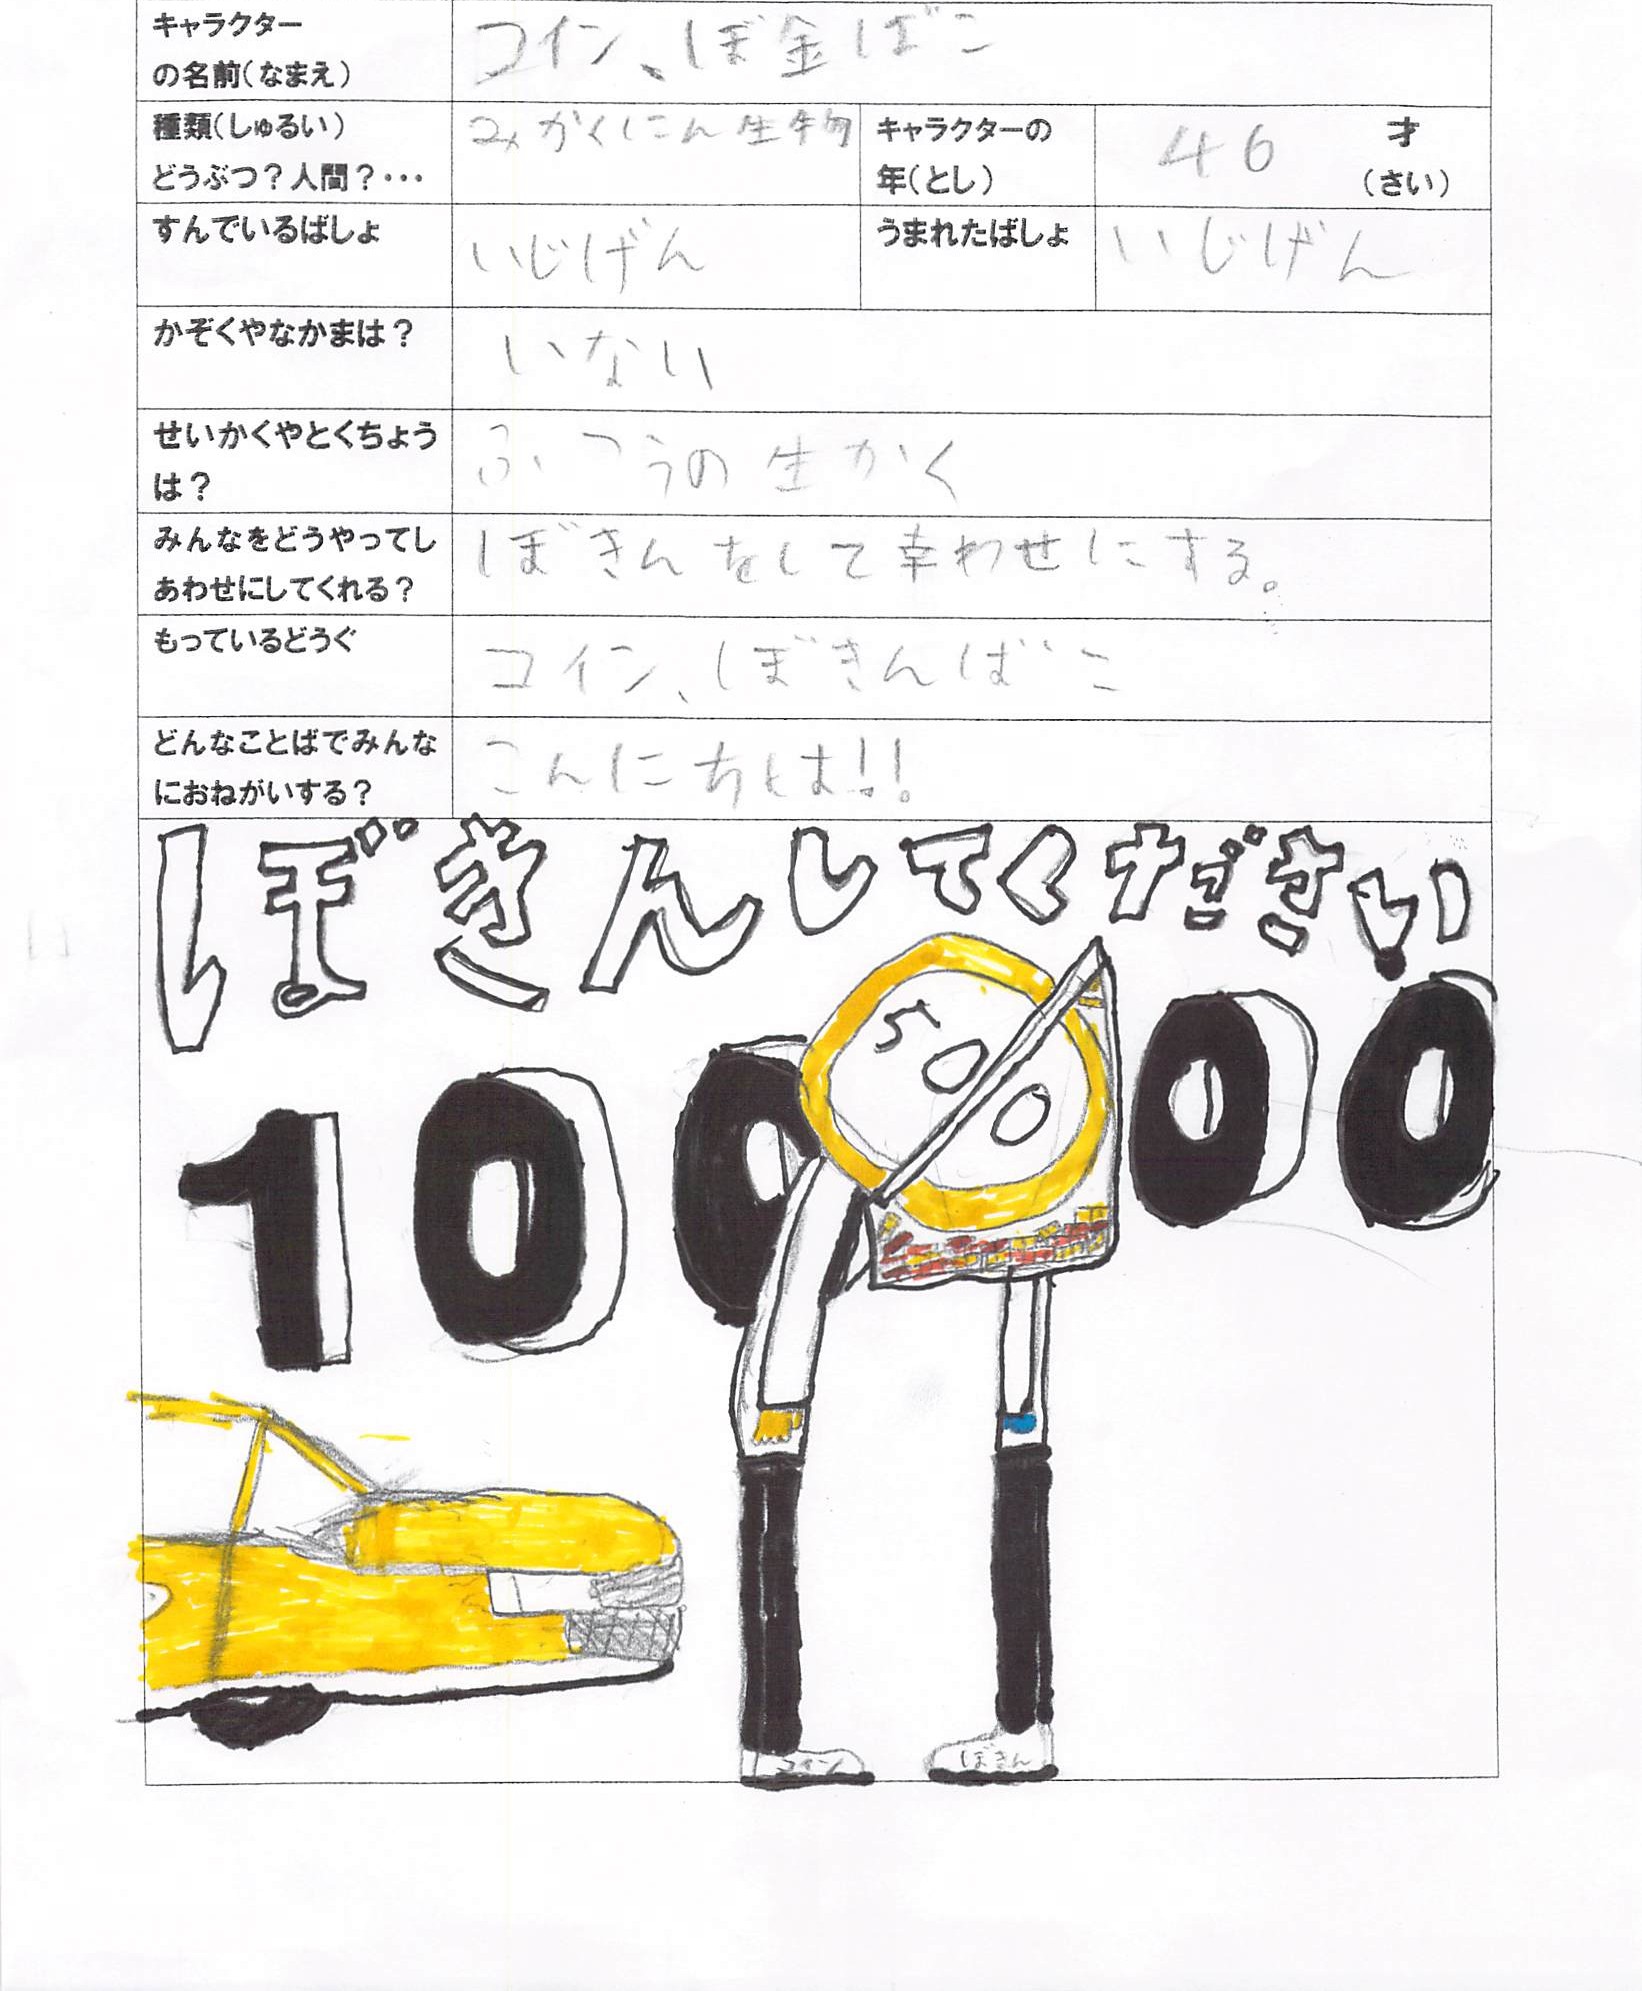 キャラクター
の名前(なまえ)
コイン、ぼ金ばこ
種類(しゅるい)
どうぶつ?人間?・・・
みかくにん生物
キャラクターの
年(とし)
46
才
(さい)
すんでいるばしょ
いじげん
うまれたばしょ
いじげん
かぞくやなかまは?
いない
せいかくやとくちょう
は?
ふつうの生かく
みんなをどうやってし
あわせにしてくれる?
ぼきんをして幸わせにする。
もっているどうぐ
コイン、ぼきんばこ
どんなことばでみんな
におねがいする?
こんにちは!!
ぼきんしてください
100
00
50
0
コイン
ぼきん